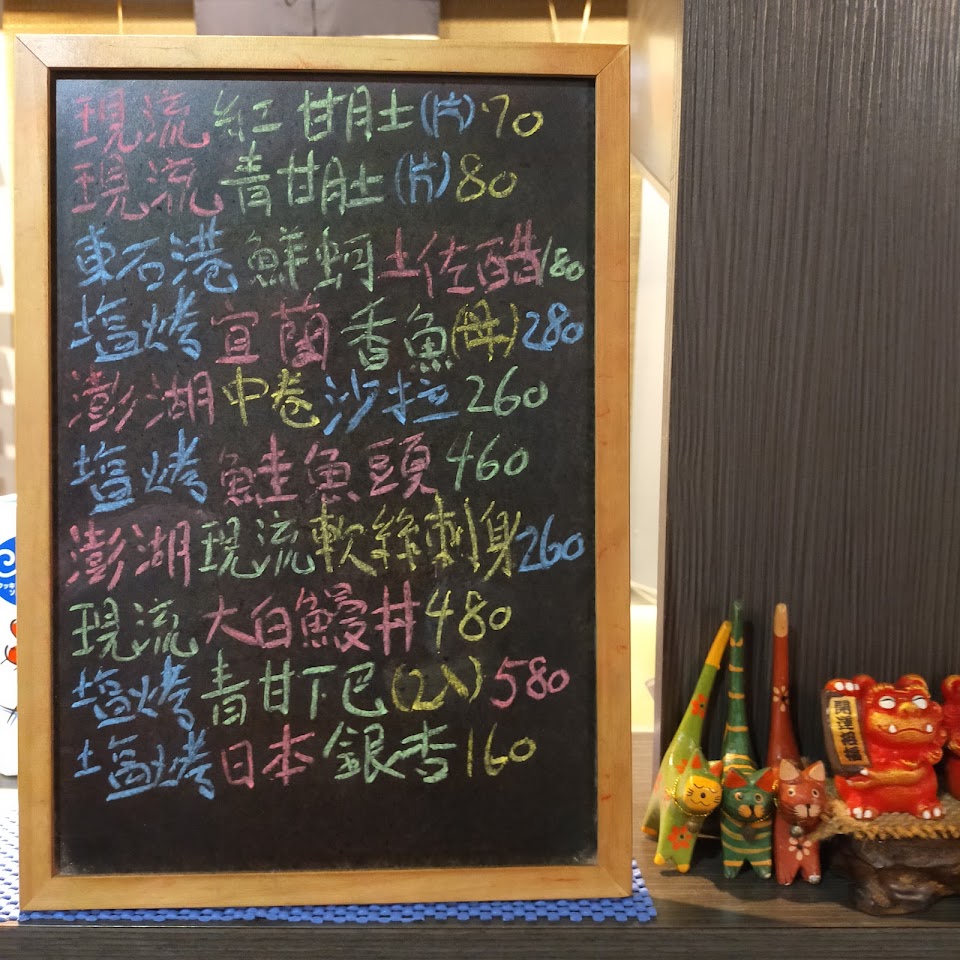 現流 紅甘肚(片) 70
現流 青甘肚(片) 80
東石港 鮮蚵 土佐醋 180
塩烤 宜蘭 香魚(母) 280
澎湖 中卷 沙拉 260
塩烤 鮭魚頭 460
澎湖 現流 軟絲刺身 260
現流 大白鰻丼 480
塩烤 青甘下巴(2入) 580
塩烤 日本 銀杏 160
開運招福